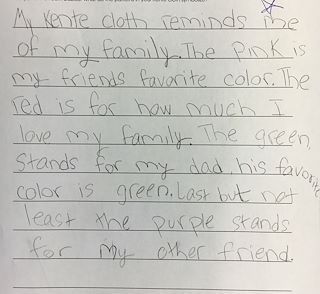 My Kente cloth reminds me
of my family. The pink is
my friends favorite color. The
red is for how much I
love my family. The green
stands for my dad, his favorite
color is green. Last but not
least the purple stands
for my other friend.